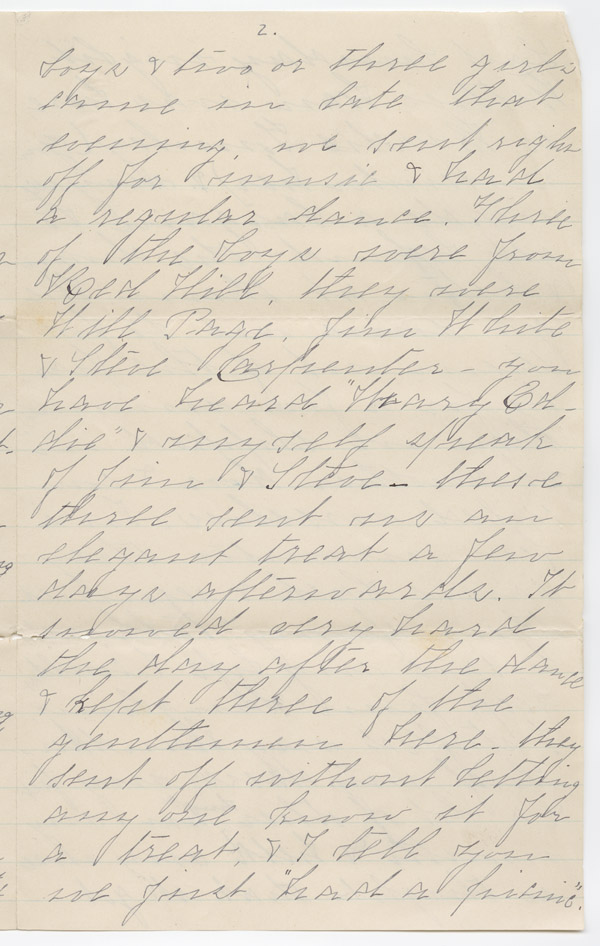 2.
boys & two or three girls
came in late that
evening, we sent right
off for music & had
a regular dance. Three
of the boys were from
Red Hill, they were
Will Page, Jim White
& Steve Carpenter - you
have heard "Harry Ed-
die" & myself speak
of Jim & Steve - these
three sent us an
elegant treat a few
days afterwards. It
snowed very hard
the day after the dance
& kept three of the
gentlemen here - they
sent off without letting
any one know it for
a treat, & I tell you
we just "had a picnic".